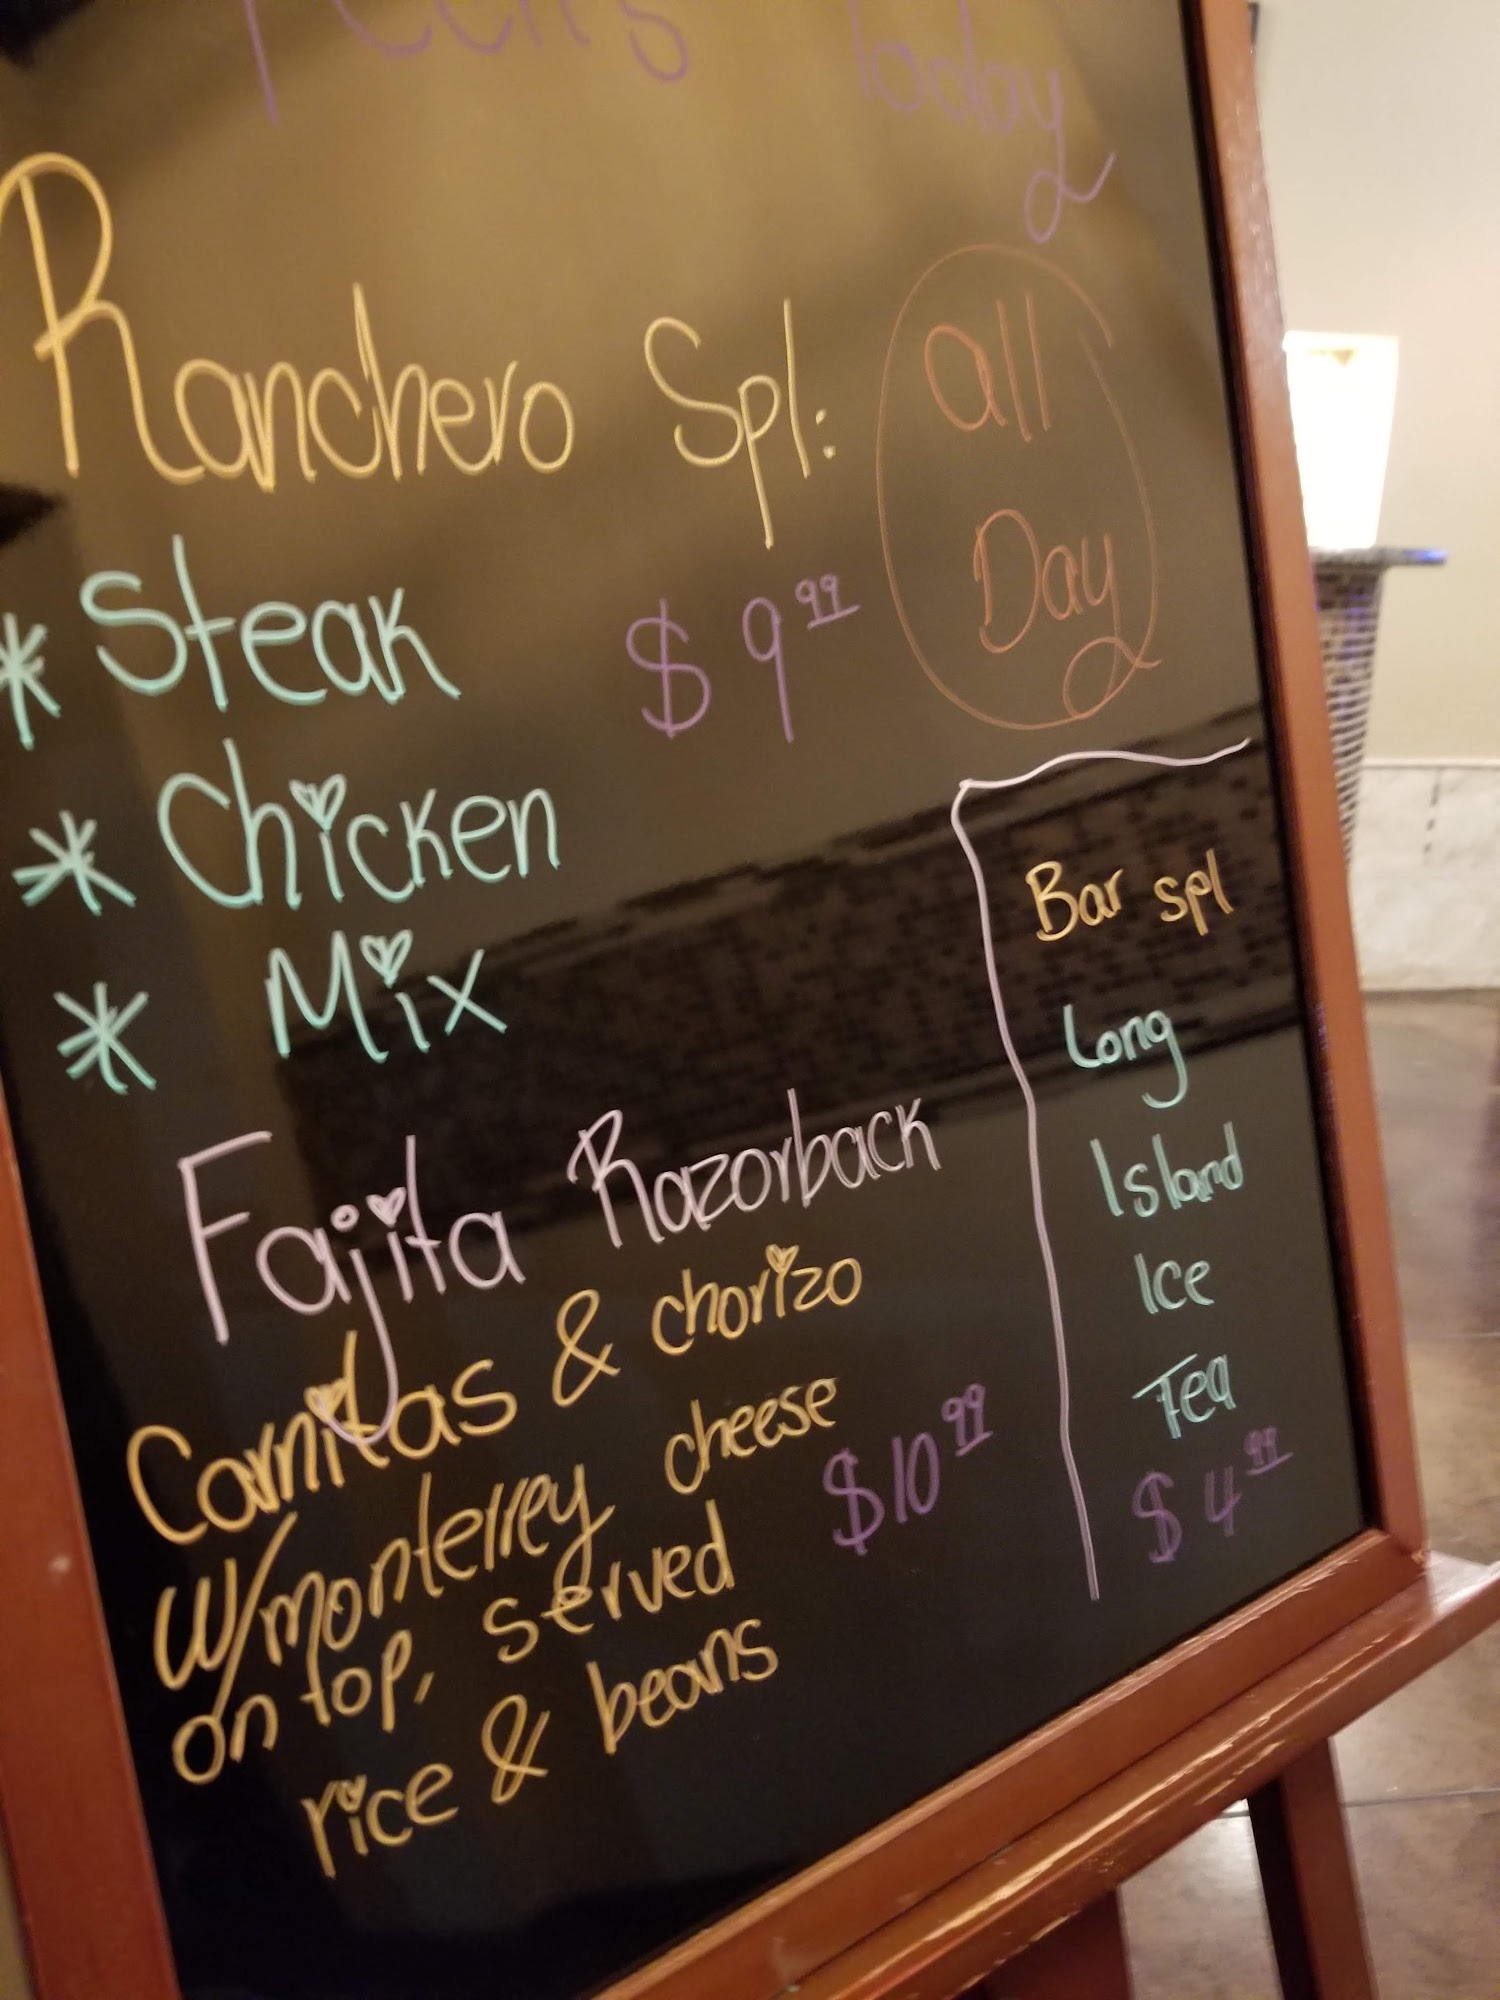 Today
Ranchero Spl:
All
Day
* Steak $9.99
* Chicken
* Mix
Fajita Razorback
Carnitas & chorizo
w/monterrey cheese
on top, served
rice & beans
$10.99
Bar spl
Long
Island
Ice
Tea
$4.99